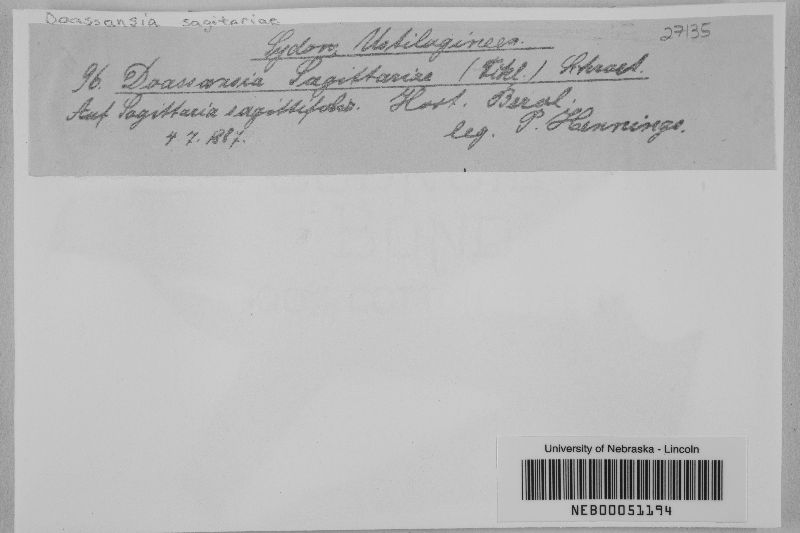 Doassansia sagitariae
27135
Sydow, Ustilagineen.
96. Doassansia Sagittariae (Fckl.) Schroet.
Auf Sagittaria sagittifolia. Hort. Berol.
4 7. 1887. leg. P. Hennings.
University of Nebraska - Lincoln
NEB00051194